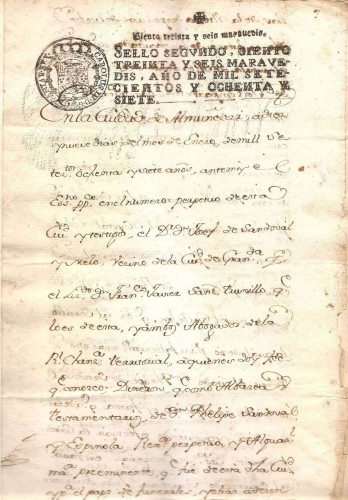 Ciento treinta y seis maravedis.
SELLO SEGVNDO, CIENTO
TREINTA Y SEIS MARAVE
DIS, AÑO DE MIL SETE
CIENTOS Y OCHENTA Y
SIETE.
En la Ciudad de Almuñecar, a diez
y nueve dias del mes de Enero, de mill Se
tetos ochenta y siete años, antemi el
Esno pp. en el numero perpetuo de esta
Ciud y testigos, el Dr Dn Josef de Sandoval
y Melo, Vecino de la Ciud de Granada, y
el Licdo Dn Franco Javier Sanz Trusillo, q
lo es de esta, y ambos Abogados de la
Rl Chanza territorial, a quienes doy fee
q conozco; Dixeron q como Albaceas
testamentarios de Dn Phelipe Sandoval
y Espinola, Rexr perpetuo, y Alguacil
mor preeminente q fue de esta dha Ciud